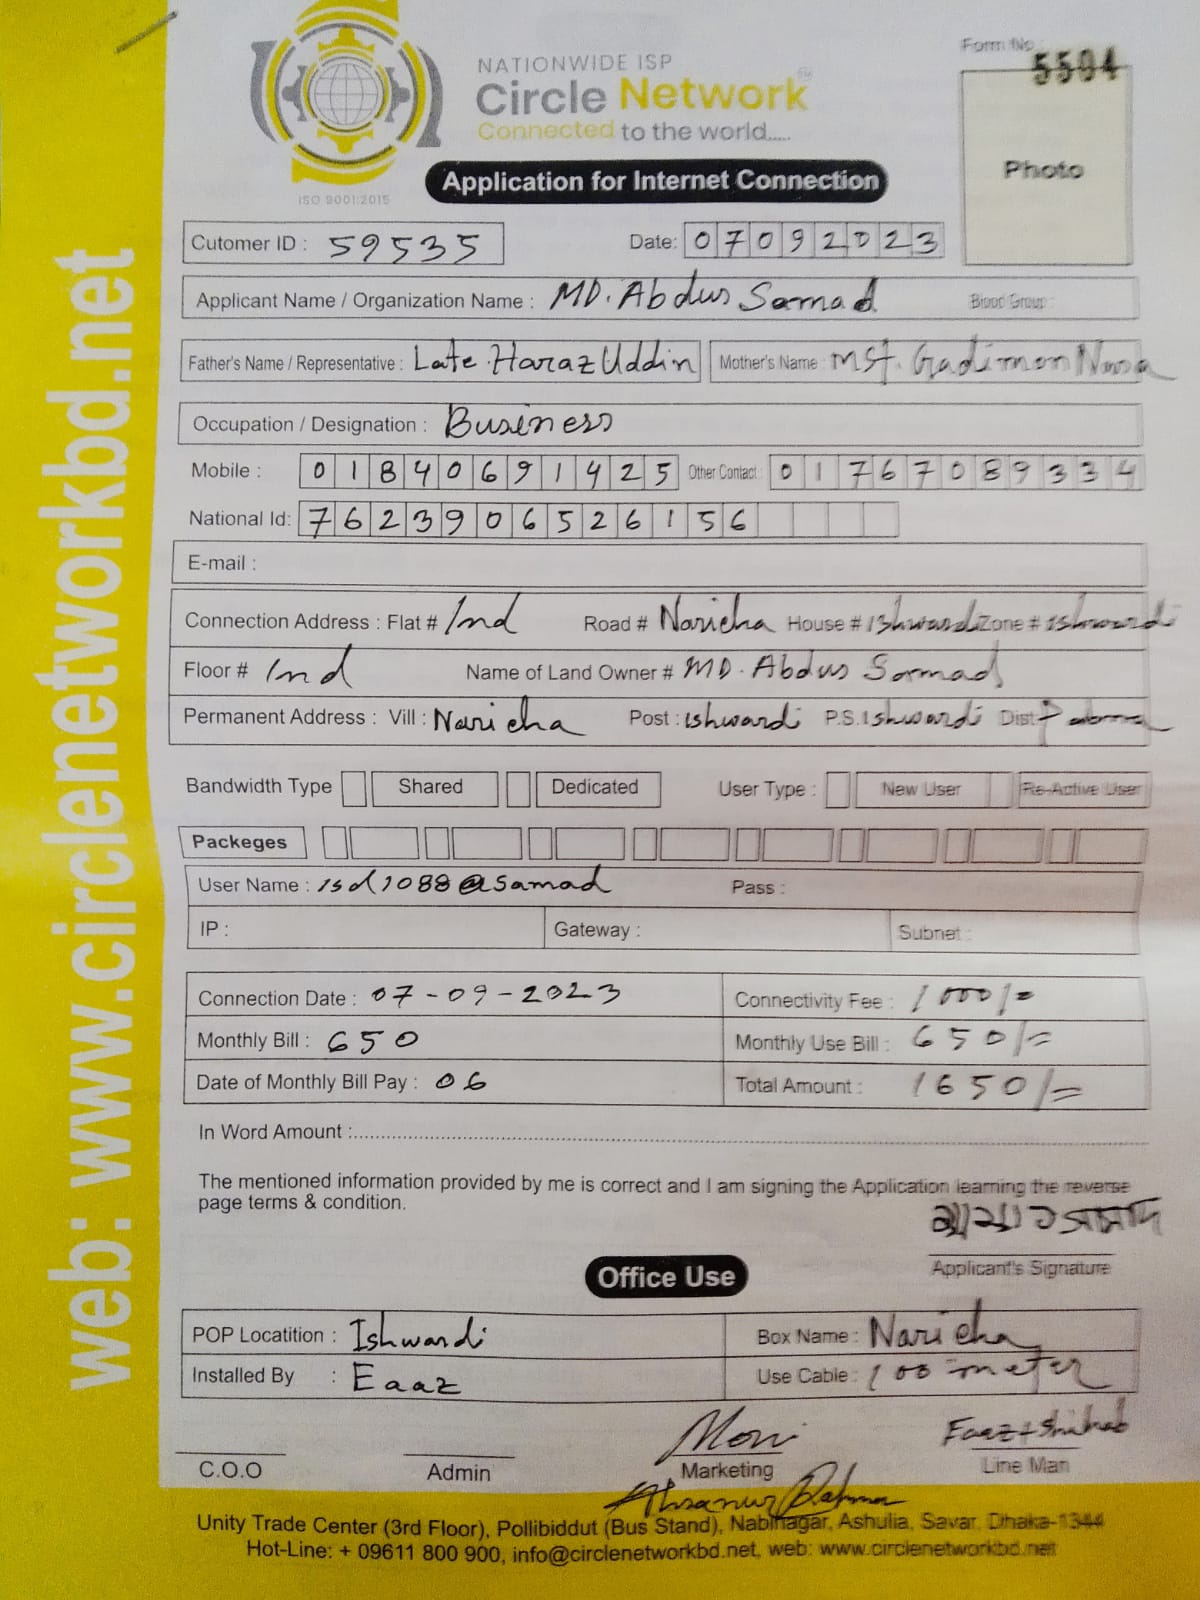 Form No
5504
NATIONWIDE ISP
Circle Network
Connected to the world.....
ISO 9001:2015
Application for Internet Connection
Photo
Cutomer ID : 59535 Date: 07092023
Applicant Name / Organization Name : MD. Abdus Samad Blood Group :
Father's Name / Representative : Late. Haraz Uddin Mother's Name : MST.
Occupation / Designation : Business
Mobile : 01840691425 Other Contact : 01767089334
National Id: 7623906526156
E-mail :
Connection Address : Flat # Ind Road # Naricha House # Ishwardi Zone # Ishwardi
Floor # Ind Name of Land Owner # MD. Abdus Samad
Permanent Address : Vill : Naricha Post : ishwardi P.S. Ishwardi Dist. Pabna
Bandwidth Type Shared Dedicated User Type : New User Re-Active User
Packeges
User Name : isd1088@samad Pass :
IP : Gateway : Subnet :
Connection Date : 07-09-2023 Connectivity Fee : 1000/=
Monthly Bill : 650 Monthly Use Bill : 650/=
Date of Monthly Bill Pay : 06 Total Amount : 1650/=
In Word Amount :
The mentioned information provided by me is correct and I am signing the Application learning the reverse
page terms & condition.
Applicant's Signature
Office Use
POP Locatition : Ishwardi Box Name : Naricha
Installed By : Eaaz Use Cable : 100 meter
C.O.O Admin Marketing Line Man
Unity Trade Center (3rd Floor), Pollibiddut (Bus Stand), Nabinagar, Ashulia, Savar, Dhaka-1344
Hot-Line: + 09611 800 900, info@circlenetworkbd.net, web: www.circlenetworkbd.net
web: www.circlenetworkbd.net